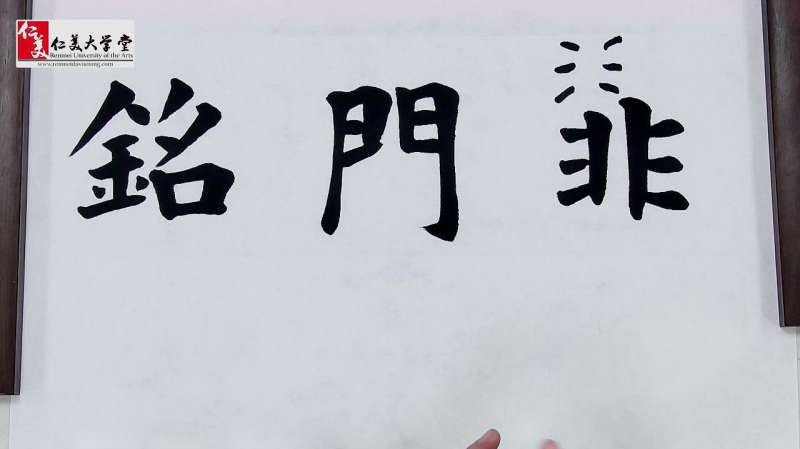 仁美
仁美大学堂
Renmei University of the Arts
www.renmeidaxuetang.com
銘 門 非